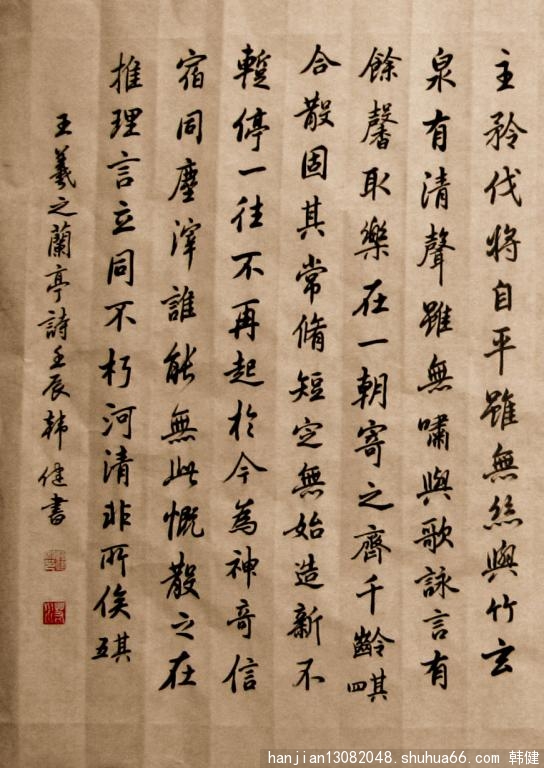 主矜伐將自平雖無絲與竹玄
泉有清聲雖無嘯與歌詠言有
餘馨取樂在一朝寄之齊千齡其四
合散固其常脩短定無始造新不
暫停一往不再起於今為神奇信
宿同塵滓誰能無此慨散之在
推理言立同不朽河清非所俟其五
王羲之蘭亭詩壬辰韩健書
hanjian13082048.shuhua66.com 韩健